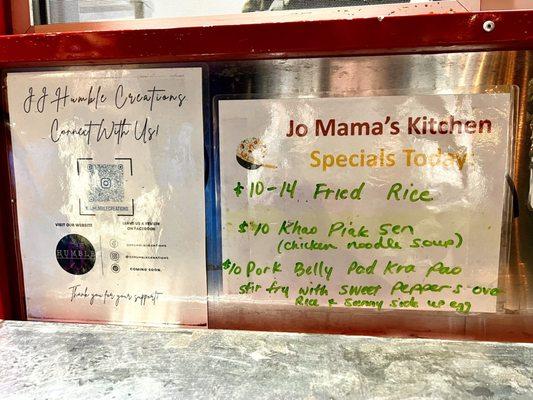 JJ Humble Creations
Connect With Us!
VISIT OUR WEBSITE
LEAVE US A REVIEW
ON FACEBOOK
HUMBLE
COMING SOON.
Thank you for your support!
Jo Mama's Kitchen
Specials Today
$10-14 Fried Rice
$10 Khao Piak Sen
(chicken noodle soup)
$10 Pork Belly Pad Kra Pao
stir fry with sweet peppers over
Rice & Sunny side up egg